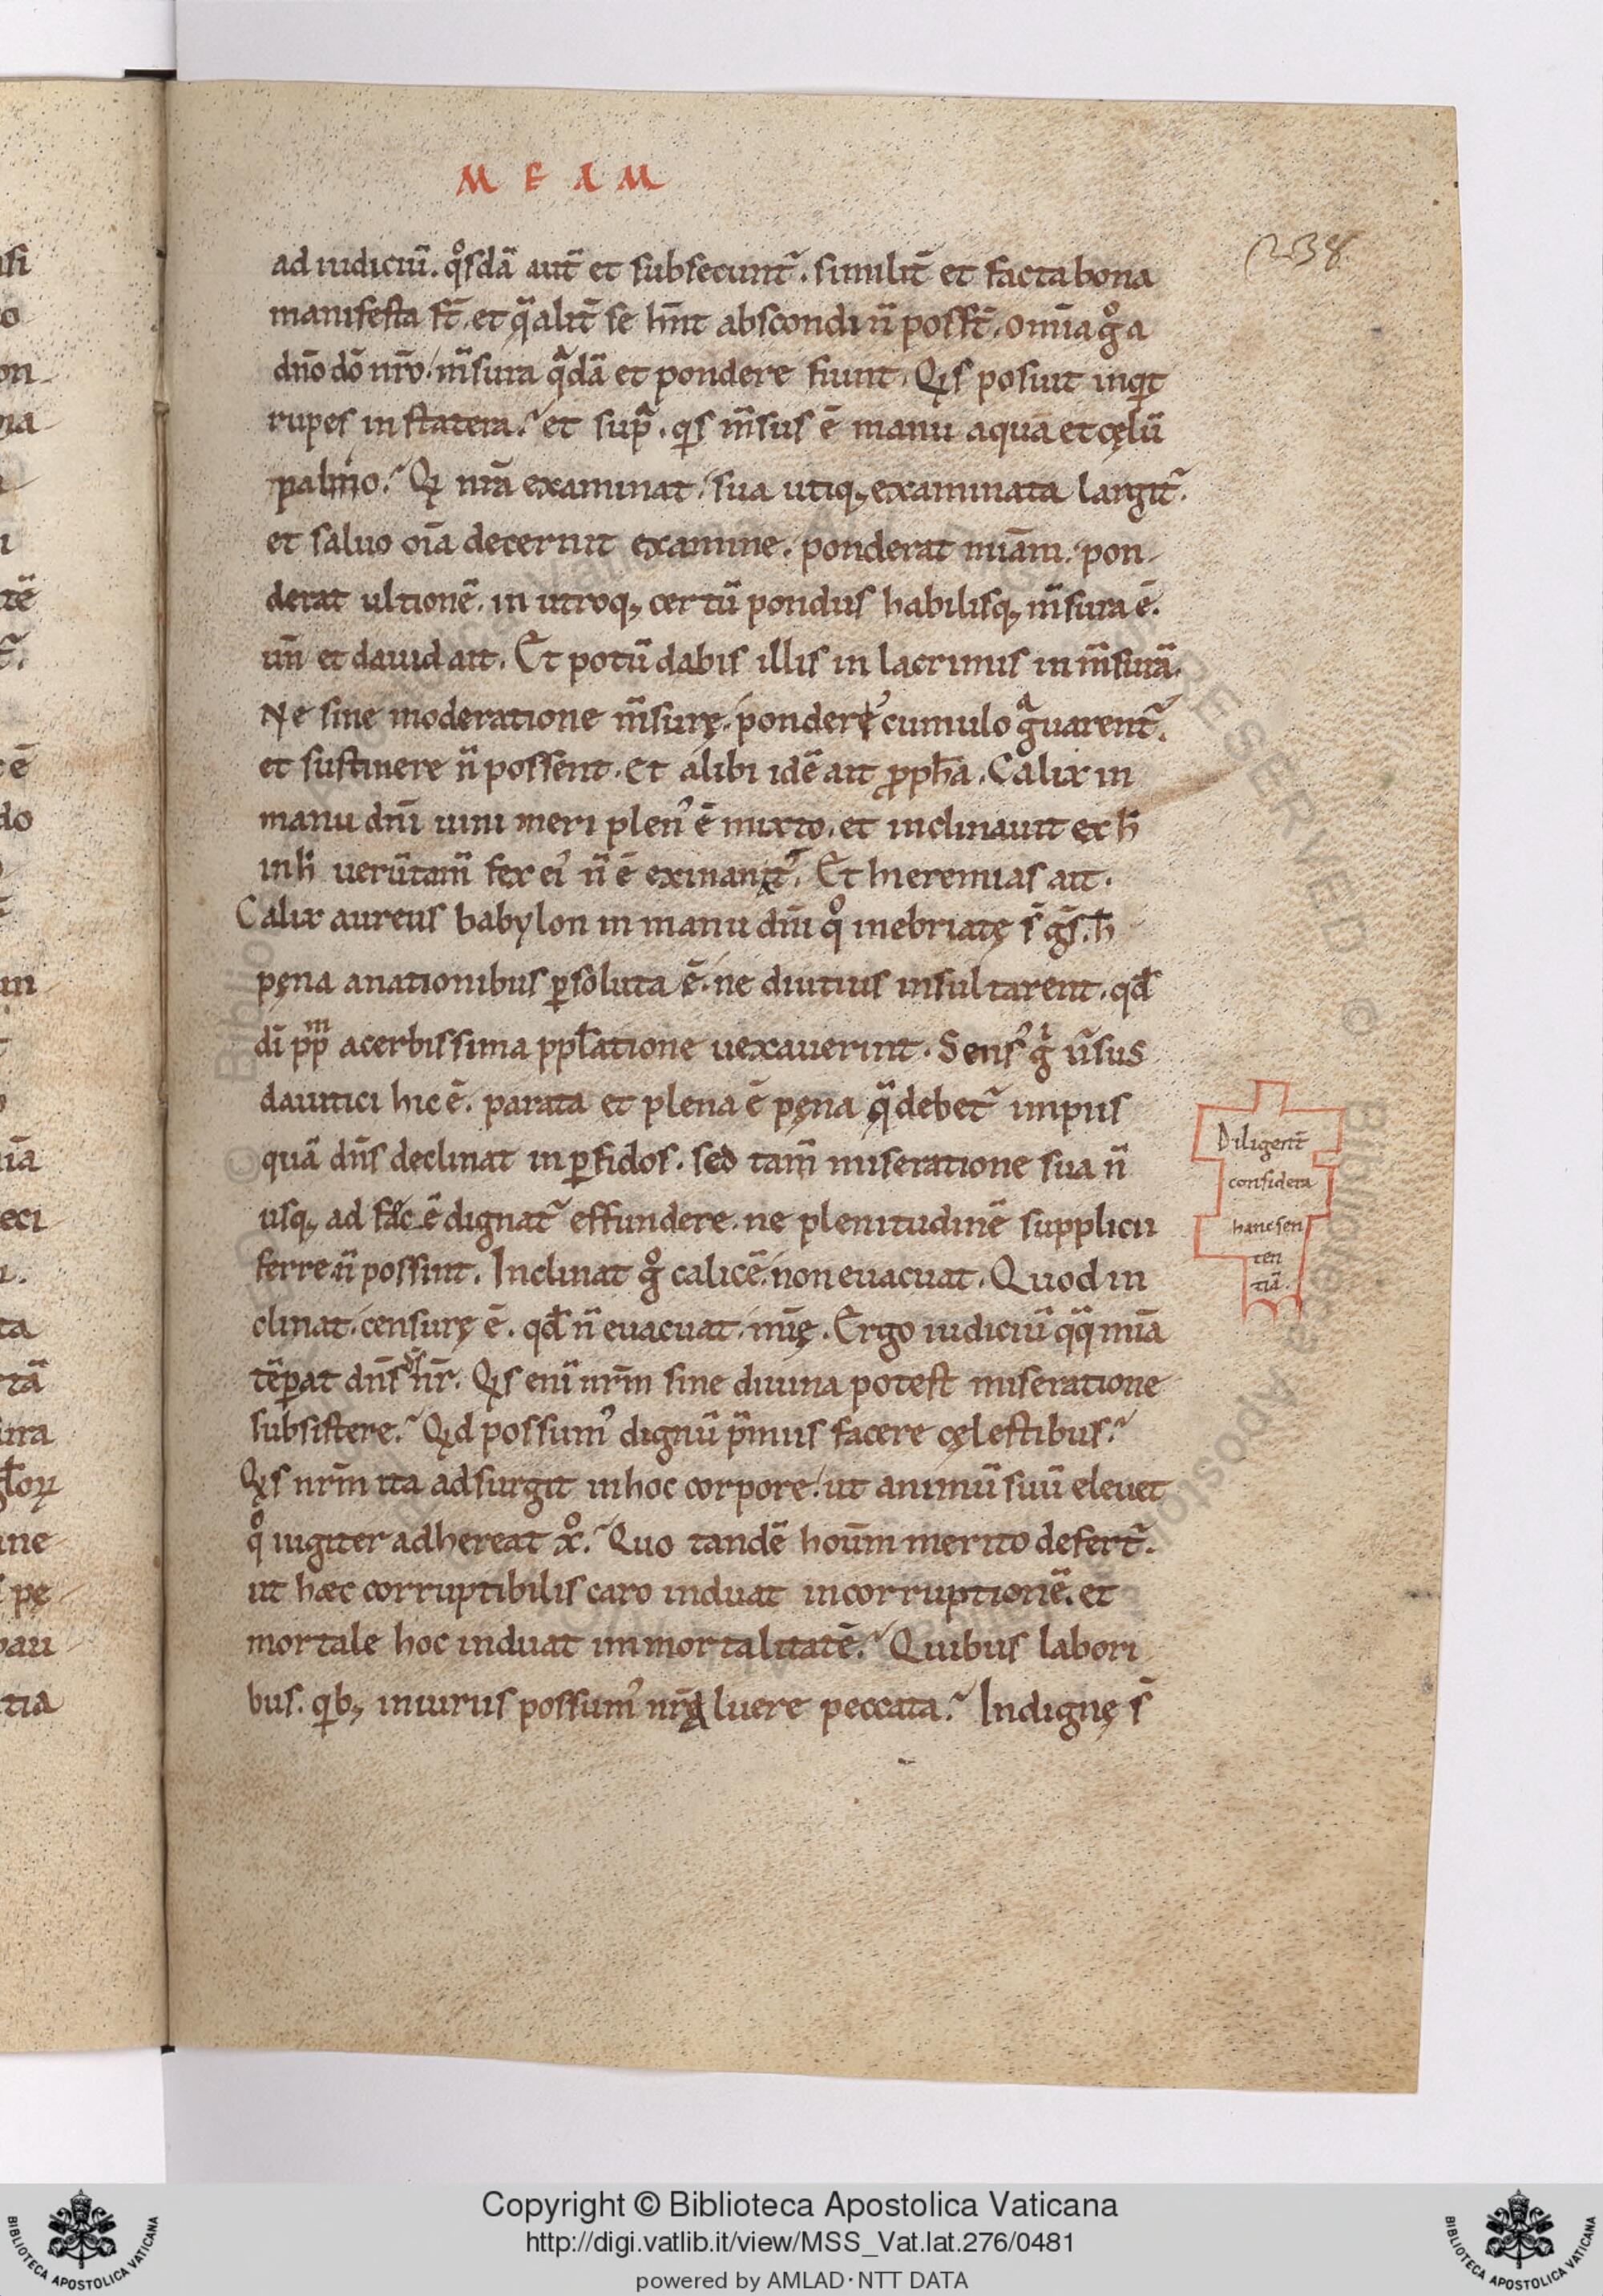 M E A M
238
ad iudiciū. qͦsdā aut̄ et subsecunt᷑. similit̄ et facta bona
manifesta st̄. et qͣlit̄ se hn̄t abscondi n̄ poss̄t. om̄ia gͦ a
dn̄o dō nr̄o. m̄sura qͣdā et pondere fiunt. Qͥs posuit inqͥt
rupes in statera? et supͣ. qͥs m̄sus ē manu aquā et cęlū
palmo? Qͥ nr̄a examinat. sua utiq; examinata largit᷑.
et saluo oīa decernit examine. ponderat mīam. pon
derat ultionē. in utroq; certū pondus habilisq; m̄sura ē.
un̄ et dauid ait. Et potū dabis illis in lacrimis in m̄surā.
Ne sine moderatione m̄surę. ponderꝰ cumulo gͣuarent᷑.
et sustinere n̄ possent. Et alibi idē ait ꝓph̄a. Calix in
manu dn̄i uini meri plenꝰ ē mixto. et inclinauit ex h̄
in h̄ uerūtam̄ fex eiꝰ n̄ ē exinanit᷑. Et hieremias ait.
Calix aureus babylon in manu dn̄i qͦ inebriatę s̄ gs̄. h̄
pęna a nationibus ꝑsoluta ē. ne diutius insultarent. qd̄
dī pp̄m acerbissima ppl̄atione uexauerint. Sensꝰ gͥ ūsus
dauitici hic ē. parata et plena ē pęna qͣ debet᷑ impiis
quā dn̄s declinat in ꝑfidos. sed tam̄ miseratione sua n̄
usq; ad fęcē dignat᷑ effundere. ne plenitudinē supplicii
ferre n̄ possint. Inclinat gͦ calicē. non euacuat. Quod in
clinat. censurę ē. qd̄ n̄ euacuat. mīę. Ergo iudiciū qͣqͣ mīa
tēꝑat dn̄s d̄s nr̄. Qͥs enī nr̄m sine diuina potest miseratione
subsistere? Qͥd possumꝰ dignū p̄miis facere cęlestibus?
Qͥs nr̄m ita adsurgit in hoc corpore. ut animū suū eleuet
qͦ iugiter adhereat xͦ? Quo tandē hoūm merito defert᷑.
ut hæc corruptibilis caro induat incorruptionē. et
mortale hoc induat immortalitatē? Quibus labori
bus. qͥb; iniuriis possumꝰ nr̄a luere peccata? Indignę s̄
Diligent̄
considera
hanc sen
ten
tiā.
Copyright © Biblioteca Apostolica Vaticana
http://digi.vatlib.it/view/MSS_Vat.lat.276/0481
powered by AMLAD·NTT DATA
BIBLIOTECA APOSTOLICA VATICANA
BIBLIOTECA APOSTOLICA VATICANA